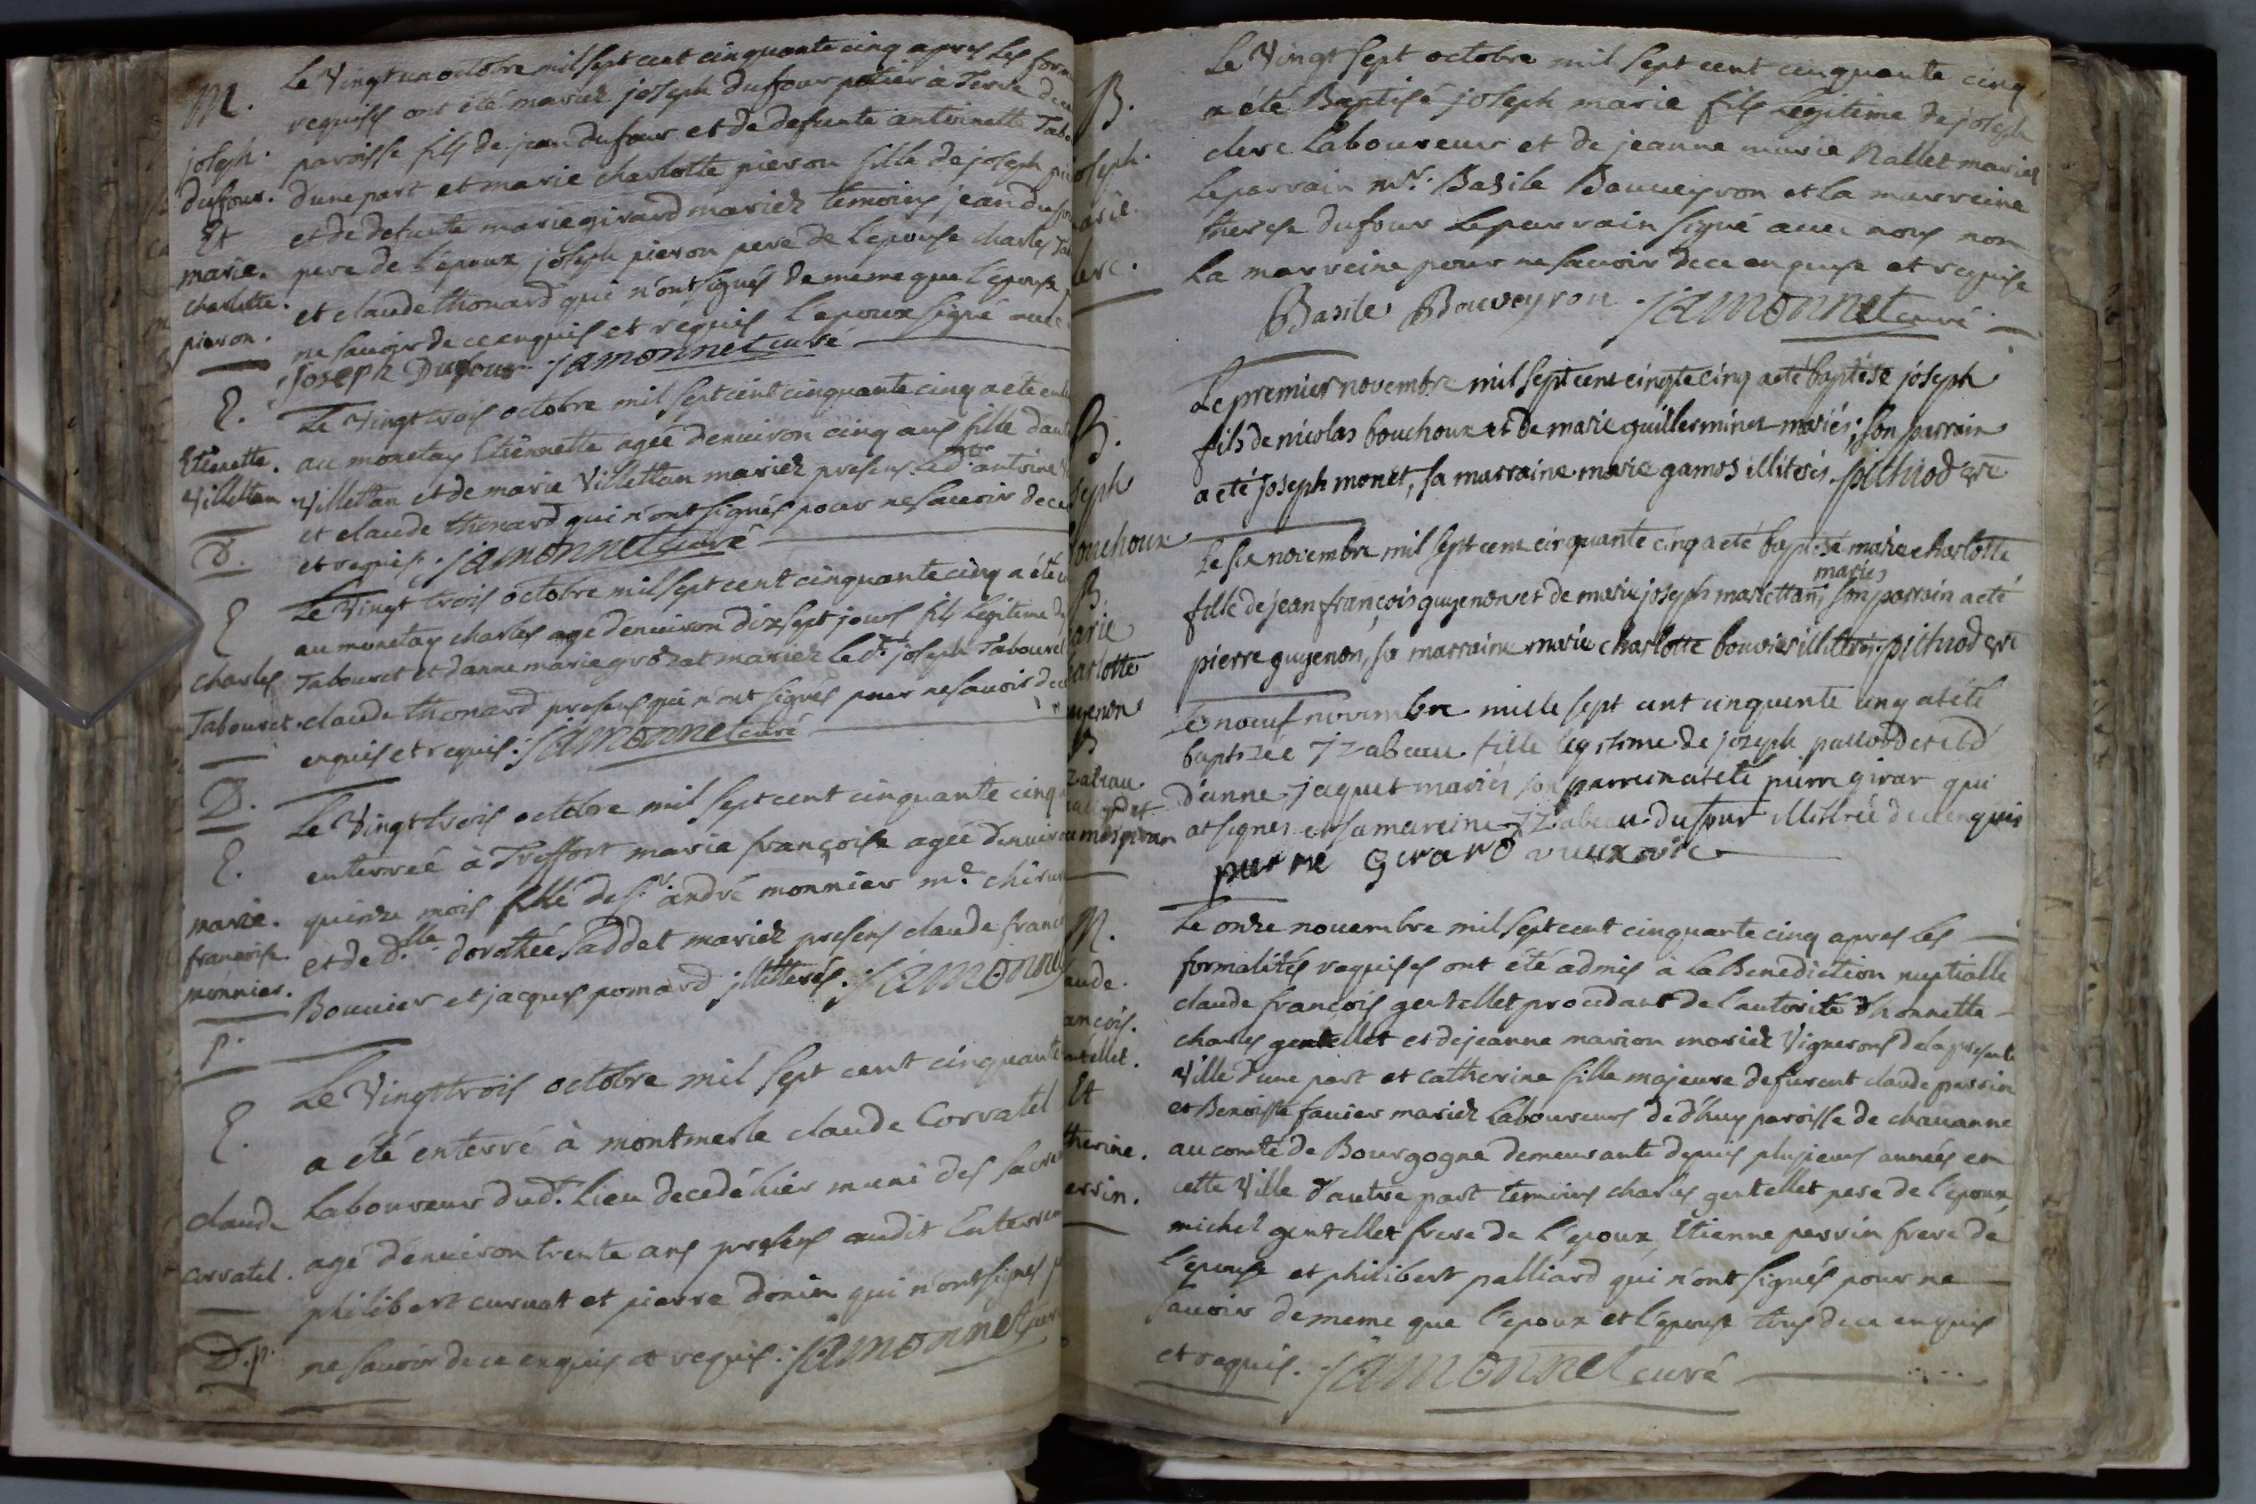 M.
joseph.
dufour.
Et
marie.
charlotte.
pieron.
Le Vingt un octobre mil sept cent cinquante cinq apres les
requises ont été mariez joseph dufour potier à Terre de
paroisse fils de jean dufour et de defunte antoinette
d'une part et marie charlotte pieron fille de joseph
et de defunte marie girard mariez temoins jean
pere de l'epoux joseph pieron pere de l'epouse charles
et claude thonard qui n'ont signés de meme que l'epouse
ne savoir de ce enquis et requis l'epoux signé avec
joseph Dufour. jamonnet curé
E.
Etienette.
Villettan
D.
Le Vingt trois octobre mil sept cent cinquante cinq a été
au monetay Etiennette agée d'environ cinq ans fille
Villettan et de marie Villettan mariez presens led.t antoine
et claude thonard qui n'ont signés pour ne savoir de
et requis. jamonnet curé
E
charles
Tabouret.
D.
Le Vingt trois octobre mil sept cent cinquante cinq a été
au monetay charles agé d'environ dix sept jours fils legitime
Tabouret et d'anne marie grozat mariez led.t joseph
claude thonard presens qui n'ont signés pour ne savoir de
enquis et requis. jamonnet curé
E.
marie.
francoise.
monnier.
P.
Le Vingt trois octobre mil sept cent cinquante cinq
enterreé à Treffort marie françoise agée
quinze mois fille de s.r andré monnier m.e
et de d.lle dorothée Paddet mariez presens claude
Bouvier et jacques pomard illitterés. jamonnet
E.
claude
corvatel.
D.p.
Le Vingt trois octobre mil sept cent cinquante
a été enterré à montmerle claude Corvatel
Laboureur dud.t lieu decedé hier muni des
agé d'environ trente ans presens audit
philibert curvat et pierre donin qui n'ont signés
ne savoir de ce enquis et requis. jamonnet
B.
Le Vingt sept octobre mil sept cent cinquante cinq
a été Baptisé joseph marie fils legitime de joseph
clerc laboureur et de jeanne marie Rallet mariez
le parrain m.r Basile Bouveyron et la marreine
therese dufour le parrain signé avec nous non
la marreine pour ne savoir de ce enquise et requise
Basile Bouveyron jamonnet curé
B.
Le premier novembre mil sept cent cinqte cinq a eté baptisé joseph
fils de nicolas bouchoux et de marie guillerminet mariés; son parrain
a eté joseph monet, sa marraine marie gamos illiterés. pithiod
B
Le six novembre mil sept cent cinquante cinq a eté baptisé marie charlotte
fille de jean françois guyenon et de marie joseph marlettan, mariés son parrain a eté
pierre guyenon, sa marraine marie charlotte bouvier pithiod
B
Le noeuf novembre mille sept cent cinquente cinq a tété
baptizée yzabeau fille legitime de jozeph
d'anne jaquet mariés son parrein a tété pierre girar qui
at signes et sa mareine yzabeau dufour illitérée de ce enquis
pierre Girard
M.
Le onze novembre mil sept cent cinquante cinq apres les
formalités requises ont été admis à la Benediction nuptialle
claude françois gentellet procedant de l'autorité d'honnette
charles gentellet et de jeanne marion mariez Vignerons de la presente
Ville d'une part et catherine fille majeure de furent claude perrin
et Benoiste favier mariez Laboureurs de d'huy paroisse de chavanne
au comté de Bourgogne demeurante depuis plusieurs années en
cette Ville d'autre part temoins charles gentellet pere de l'epoux,
michel gentellet frere de l'epoux, Etienne perrin frere de
l'epouse et philibert palliard qui n'ont signés pour ne
savoir de meme que l'epoux et l'epouse tous de ce enquis
et requis. jamonnet curé